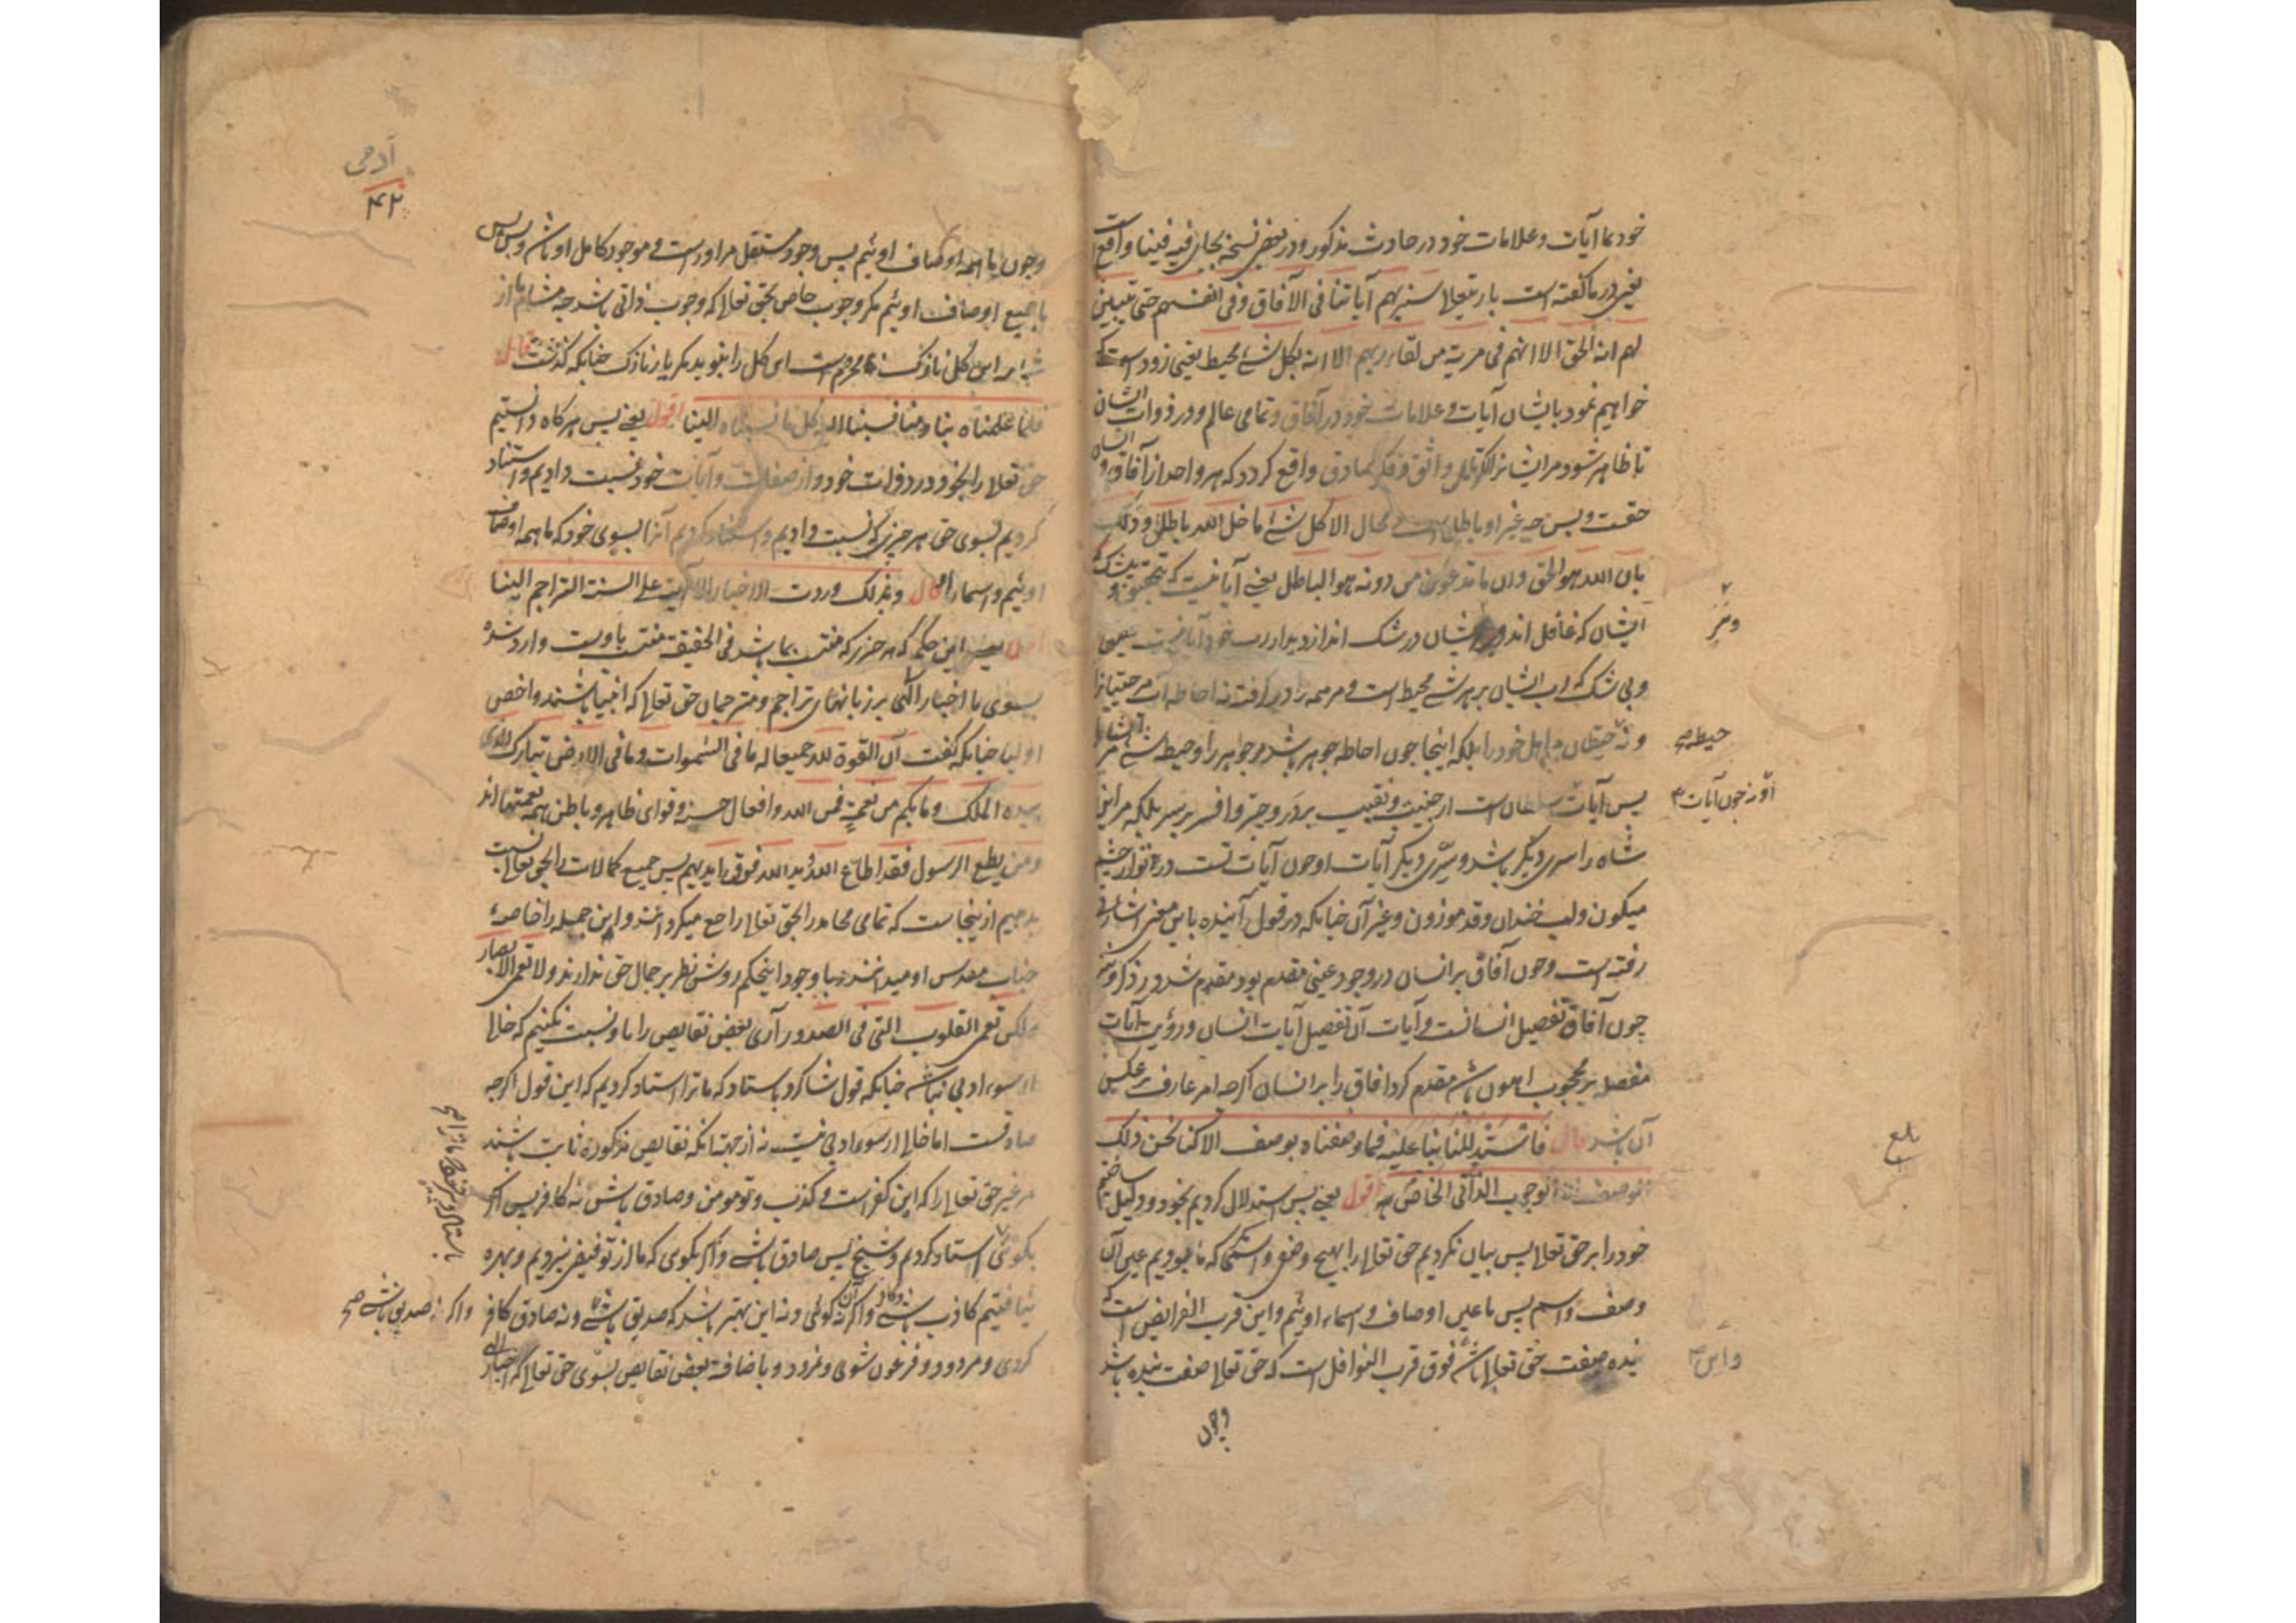 خود بما آیات و علامات خود در حادث مذکور و در بعضی نسخه بجای فیه فینا واقع است
یعنی در ما گفته است باریتعالی سنریهم آیاتنا فی الآفاق و فی انفسهم حتی یتبین
لهم انه الحق الا انهم فی مریة من لقاء ربهم الا انه بکل شئ محیط یعنی زود است که
خواهیم نمود بایشان آیات و علامات خود در آفاق و تمامی عالم و در ذوات ایشان
تا ظاهر شود مر ایشانرا واثق و فکر صادق واقع کردد که هر واحد از آفاق و انسان
حقست و بس چه غیر او باطل است و محال الا کل شئ ما خلا الله باطل و ذلک
بان الله هو الحق و ان ما تدعون من دونه هو الباطل یعنی آیا نیست که بتحقیق
ایشان که غافل اند در شک اند از دیدار رب خود آیا نیست
و بی شک که رب ایشان بر هر شئ محیط است و مر همه را در کرفته نه احاطه
و نه خود را بلکه اینجا چون احاطه جوهر باشد مر جواهر را و حیطه شئ مر
پس آیات سلطان است از جنیبت و نقیب بر در و چتر و افسر بر سر بلکه مر این
شاه را سری دیگر باشد و سیری دیگر آیات او چون آیات تست در تو از چشم
میکون و لب خندان و قد موزون و غیر آن چنانکه در قول آینده باین معنی اشارتی
رفته است و چون آفاق بر انسان در وجود عینی مقدم بود مقدم شد در ذکر و نیز
چون آفاق تفصیل انسانست و آیات آن تفصیل آیات انسان و رؤیت آیات
مفصله بر محجوب اهون باشد مقدم کرد آفاق را بر انسان اکرچه امر عارف بر عکس
آن باشد قال فاستدللنا بنا علیه فما وصفناه بوصف الا کنا نحن ذلک
الوصف الا الوجوب الذاتی الخاص به اقول یعنی پس استدلال کردیم بخود و دلیل ساختیم
خود را بر حق تعالی پس بیان نکردیم حق تعالی را بهیچ وصفی و اسمی که ما بودیم عین آن
وصف و اسم پس ما عین اوصاف و اسماء اوئیم و این قرب الفرایض است که
بنده صفت حق تعالی باشد فوق قرب النوافل است که حق تعالی صفت بنده باشد
وچون
حیطه صح
او نه چون آیات
بلغ
و این
آدمی
۴۲
و چون ما همه اوصاف اوئیم پس وجود مستقل مر او راست و موجود کامل او باشد و بس پس
ما جمیع اوصاف اوئیم مکر وجوب خاص بحق تعالی که وجوب ذاتی باشد چه مشام ما از
این کل نازک نامحرم است این کل را نبوید مکر یار نازک چنانکه کذشت قال
فلما علمناه بنا و منا نسبنا الیه کل ما نسبناه الینا اقول یعنی پس هرکاه دانستیم
حق تعالی را بخود و در ذوات خود و از صفات و آیات خود نسبت دادیم و اسناد
کردیم بسوی حق هر چیزی که نسبت دادیم و اسناد کردیم آنرا بسوی خود که ما همه اوصاف
اوئیم و اسماء او قال و بذلک وردت الاخبار الالهیة علی السنة التراجم الینا
اقول یعنی این حکم که هر چیز که منتسب بما باشد فی الحقیقة منتسب باوست وارد شده
بسوی ما اخبار الهی بر زبانهای تراجم و مترجمان حق تعالی که انبیا باشند و اخص
اولیا چنانکه گفت ان القوة لله جمیعا له ما فی السموات و ما فی الارض تبارک الذی
بیده الملک و ما بکم من نعمة فمن الله و افعال حسنه و قوای ظاهر و باطن همه نعمتها اند
و من یطع الرسول فقد اطاع الله ید الله فوق ایدیهم پس جمیع کمالات را بحق تعالی نسبت
بدهیم از ینجاست که تمامی محامد را بحق تعالی راجع میکردانند و این جمله را خاصهٔ
جناب مقدس او میدانند با وجود اینحکم روشن نظر بر جمال حق ندارند و لا تعمی الابصار
ولکن تعمی القلوب التی فی الصدور آری بعض نقایص را باو نسبت نکنیم که خالی
از سوء ادبی نباشد چنانکه قول شاکرد باستاد که ما ترا استاد کردیم که این قول اکرچه
صادقست اما خالی از سوء ادبی نیست نه از جهت آنکه نقایص مذکوره ثابت باشند
مر غیر حق تعالی را که این کفر است و کذب و تو مومن و صادق باش نه کافر پس اگر
بگوئی استاد کردم و شیخ پس صادق باشی و اگر بکوی که ما از تو فیض نبردیم و بهره
نیافتیم کاذب باشی و اگر آن نگوئی و نه این بهتر باشد که صدیق باشی و نه صادق کافر
کردی و مردود و فرعون شوی و نمرود و باضافه بعض نقایص بسوی حق تعالی که اخبار الهی
واگر نه صدیق باشی صح